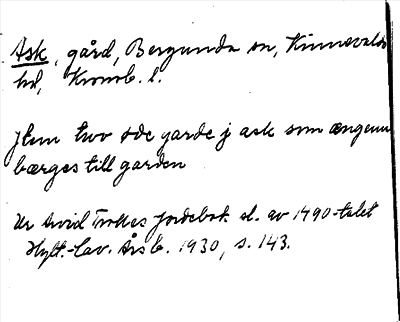 Ask, gård, Bergunda sn, Kinnevalds
hd, Kronob. l.
Jtem two öde garde j ask som ængenn
bærges till garden
Ur Arvid Trolles jordebok sl. av 1490-talet
Hylt.-Cav. Årsb. 1930, s. 143.